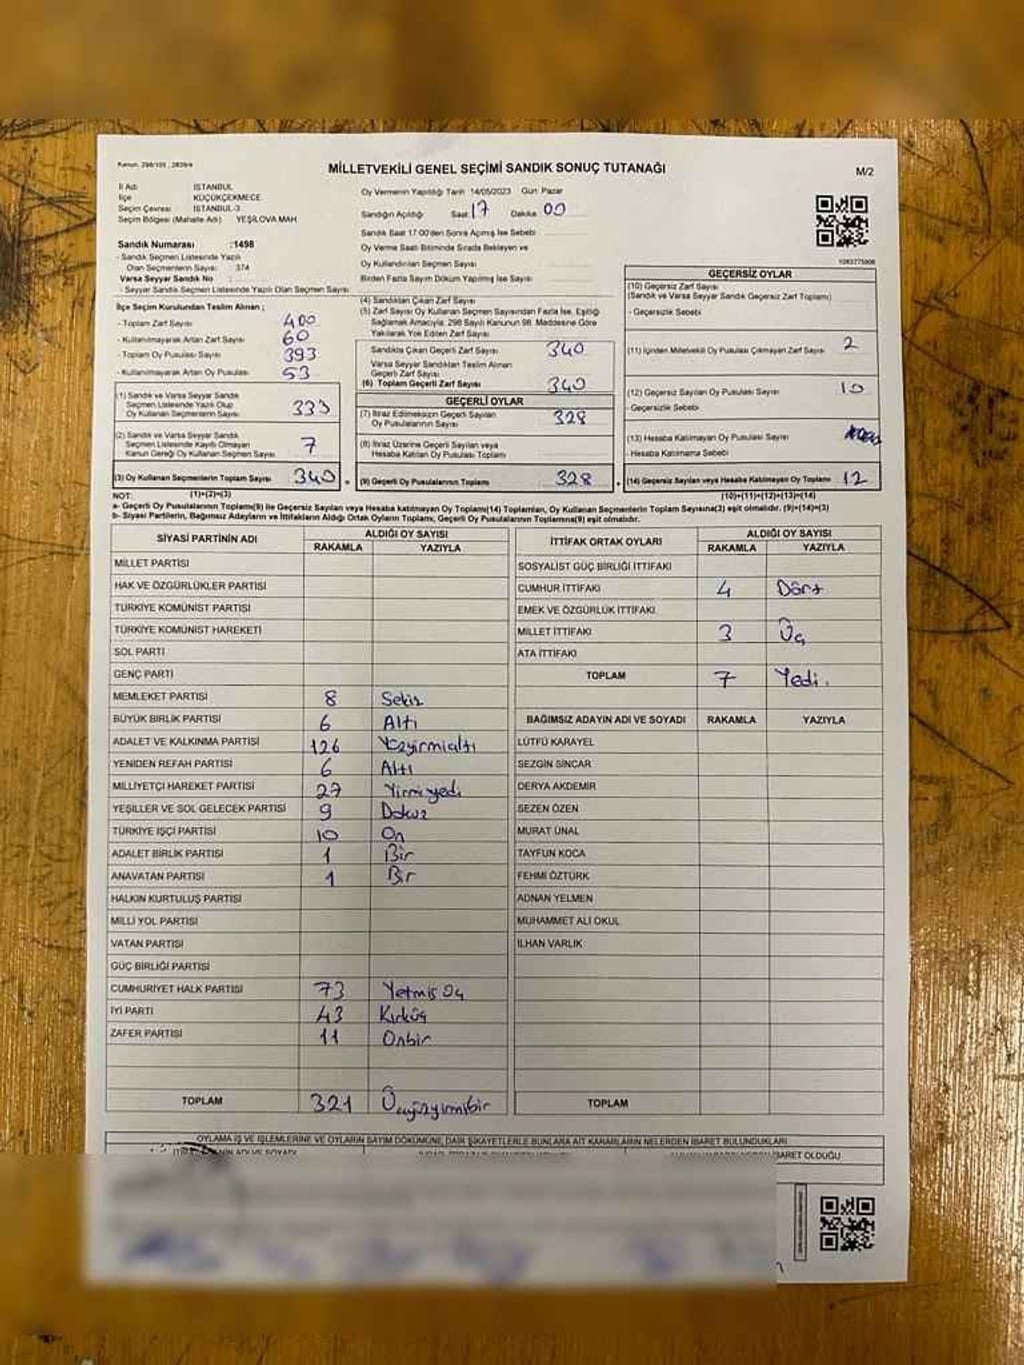 Kanun: 298/105 , 2839/4
MİLLETVEKİLİ GENEL SEÇİMİ SANDIK SONUÇ TUTANAĞI
M/2
İl Adı : İSTANBUL
İlçe : KÜÇÜKÇEKMECE
Seçim Çevresi : İSTANBUL-3
Seçim Bölgesi (Mahalle Adı) : YEŞİLOVA MAH.
Oy Vermenin Yapıldığı Tarih 14/05/2023 Gün: Pazar
Sandığın Açıldığı Saat 17 Dakika 00
Sandık Saat 17:00'den Sonra Açılmış İse Sebebi
Oy Verme Saati Bitiminde Sırada Bekleyen ve
Oy Kullandırılan Seçmen Sayısı
Birden Fazla Sayım Döküm Yapılmış İse Sayısı
Sandık Numarası :1498
- Sandık Seçmen Listesinde Yazılı
Olan Seçmenlerin Sayısı: 374
Varsa Seyyar Sandık No :
- Seyyar Sandık Seçmen Listesinde Yazılı Olan Seçmen Sayısı:
İlçe Seçim Kurulundan Teslim Alınan ;
- Toplam Zarf Sayısı 400
- Kullanılmayarak Artan Zarf Sayısı 60
- Toplam Oy Pusulası Sayısı 393
- Kullanılmayarak Artan Oy Pusulası 53
(1) Sandık ve Varsa Seyyar Sandık
Seçmen Listesinde Yazılı Olup
Oy Kullanan Seçmenlerin Sayısı 333
(2) Sandık ve Varsa Seyyar Sandık
Seçmen Listesinde Kayıtlı Olmayan
Kanun Gereği Oy Kullanan Seçmen Sayısı 7
(3) Oy Kullanan Seçmenlerin Toplam Sayısı 340
(1)+(2)=(3)
(4) Sandıktan Çıkan Zarf Sayısı
(5) Zarf Sayısı Oy Kullanan Seçmen Sayısından Fazla İse, Eşitliği
Sağlamak Amacıyla, 298 Sayılı Kanunun 98. Maddesine Göre
Yakılarak Yok Edilen Zarf Sayısı
Sandıkta Çıkan Geçerli Zarf Sayısı 340
Varsa Seyyar Sandıktan Teslim Alınan
Geçerli Zarf Sayısı
(6) Toplam Geçerli Zarf Sayısı 340
GEÇERLİ OYLAR
(7) İtiraz Edilmeksizin Geçerli Sayılan
Oy Pusulalarının Sayısı 328
(8) İtiraz Üzerine Geçerli Sayılan veya
Hesaba Katılan Oy Pusulaları Toplamı
= (9) Geçerli Oy Pusulalarının Toplamı 328
1083775006
GEÇERSİZ OYLAR
(10) Geçersiz Zarf Sayısı
(Sandık ve Varsa Seyyar Sandık Geçersiz Zarf Toplamı)
- Geçersizlik Sebebi
(11) İçinden Milletvekili Oy Pusulası Çıkmayan Zarf Sayısı 2
(12) Geçersiz Sayılan Oy Pusulası Sayısı 10
- Geçersizlik Sebebi
(13) Hesaba Katılmayan Oy Pusulası Sayısı
- Hesaba Katılmama Sebebi
+ (14) Geçersiz Sayılan veya Hesaba Katılmayan Oy Toplamı 12
(10)+(11)+(12)+(13)=(14)
NOT:
a- Geçerli Oy Pusulalarının Toplamı(9) ile Geçersiz Sayılan veya Hesaba Katılmayan Oy Toplamı(14) Toplamları, Oy Kullanan Seçmenlerin Toplam Sayısına(3) eşit olmalıdır. (9)+(14)=(3)
b- Siyasi Partilerin, Bağımsız Adayların ve İttifakların Aldığı Ortak Oyların Toplamı, Geçerli Oy Pusulalarının Toplamına(9) eşit olmalıdır.
SİYASİ PARTİNİN ADI ALDIĞI OY SAYISI
RAKAMLA YAZIYLA
MİLLET PARTİSİ
HAK VE ÖZGÜRLÜKLER PARTİSİ
TÜRKİYE KOMÜNİST PARTİSİ
TÜRKİYE KOMÜNİST HAREKETİ
SOL PARTİ
GENÇ PARTİ
MEMLEKET PARTİSİ 8 Sekiz
BÜYÜK BİRLİK PARTİSİ 6 Altı
ADALET VE KALKINMA PARTİSİ 126 Yüzyirmialtı
YENİDEN REFAH PARTİSİ 6 Altı
MİLLİYETÇİ HAREKET PARTİSİ 27 Yirmiyedi
YEŞİLLER VE SOL GELECEK PARTİSİ 9 Dokuz
TÜRKİYE İŞÇİ PARTİSİ 10 On
ADALET BİRLİK PARTİSİ 1 Bir
ANAVATAN PARTİSİ 1 Bir
HALKIN KURTULUŞ PARTİSİ
MİLLİ YOL PARTİSİ
VATAN PARTİSİ
GÜÇ BİRLİĞİ PARTİSİ
CUMHURİYET HALK PARTİSİ 73 Yetmiş Üç
İYİ PARTİ 43 Kırküç
ZAFER PARTİSİ 11 Onbir
TOPLAM 321 Üçyüzyirmibir
İTTİFAK ORTAK OYLARI ALDIĞI OY SAYISI
RAKAMLA YAZIYLA
SOSYALİST GÜÇ BİRLİĞİ İTTİFAKI
CUMHUR İTTİFAKI 4 Dört
EMEK VE ÖZGÜRLÜK İTTİFAKI
MİLLET İTTİFAKI 3 Üç
ATA İTTİFAKI
TOPLAM 7 Yedi.
BAĞIMSIZ ADAYIN ADI VE SOYADI RAKAMLA YAZIYLA
LÜTFÜ KARAYEL
SEZGİN SİNCAR
DERYA AKDEMİR
SEZEN ÖZEN
MURAT ÜNAL
TAYFUN KOCA
FEHMİ ÖZTÜRK
ADNAN YELMEN
MUHAMMET ALİ OKUL
İLHAN VARLIK
TOPLAM
OYLAMA İŞ VE İŞLEMLERİNE VE OYLARIN SAYIM DÖKÜMÜNE DAİR ŞİKAYETLERLE BUNLARA AİT KARARLARIN NELERDEN İBARET BULUNDUKLARI
ADI VE SOYADI
İBARET OLDUĞU